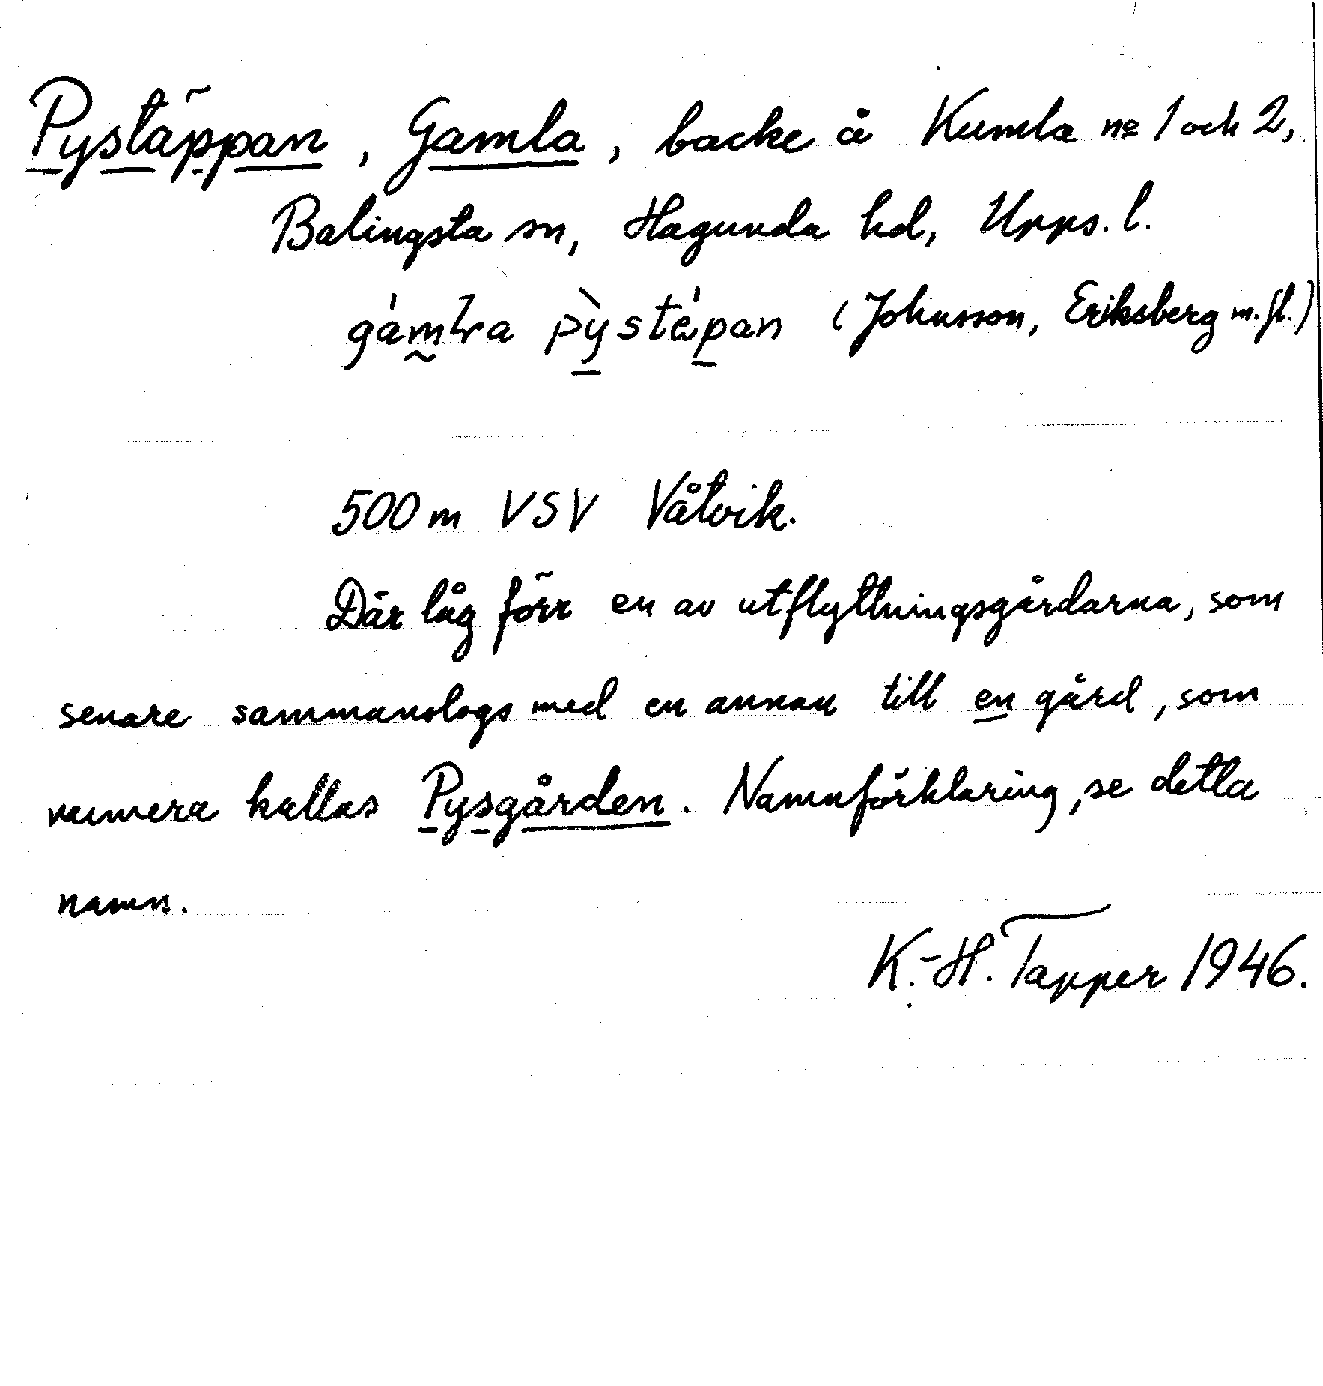 Pystäppan, Gamla, backe å Kumla nr 1 och 2,
Balingsta sn, Hagunda hd, Upps. l.
(Johnsson, Eriksberg m.fl.)
500 m VSV Våtvik.
Där låg förr en av utflyttningsgårdarna, som
senare sammanslogs med en annan till en gård, som
numera kallas Pysgården. Namnförklaring, se detta
namn.
K.-H. Tapper 1946.